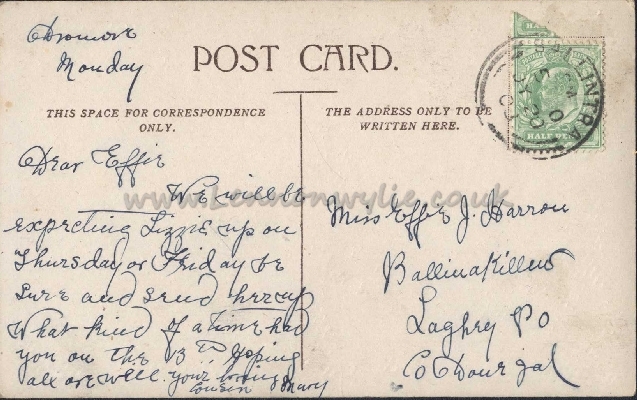 Dromore
Monday
POST CARD.
THIS SPACE FOR CORRESPONDENCE
ONLY.
THE ADDRESS ONLY TO BE
WRITTEN HERE.
BALLINTRA
HALF PENNY
Dear Effie
We will be
expecting Lizzie up on
Thursday or Friday be
sure and send her up
What kind of a time had
you on the 13th hoping
all are well. your loving
cousin Mary
www.lennonwylie.co.uk
Miss Effie J. Harron
Ballinakillew
Laghey PO
Co Donegal